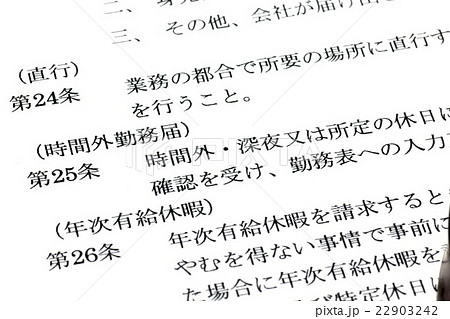 二、
三、 その他、会社が届け出
(直行)
第24条 業務の都合で所要の場所に直行す
を行うこと。
(時間外勤務届)
第25条 時間外・深夜又は所定の休日に
確認を受け、勤務表への入力
(年次有給休暇)
第26条 年次有給休暇を請求すると
やむを得ない事情で事前に
た場合に年次有給休暇を
び特定休日
pixta.jp - 22903242